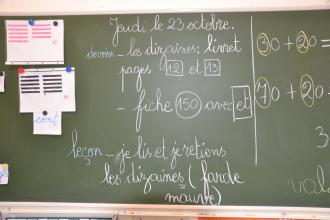 Jeudi le 23 octobre.
devoirs - les dizaines: livret
pages 12 et 13
- fiche 150 avec et
leçon - je lis et je retiens
les dizaines = (farde
mauve)
30 + 20 =
70 + 20 =
3
vale
cent